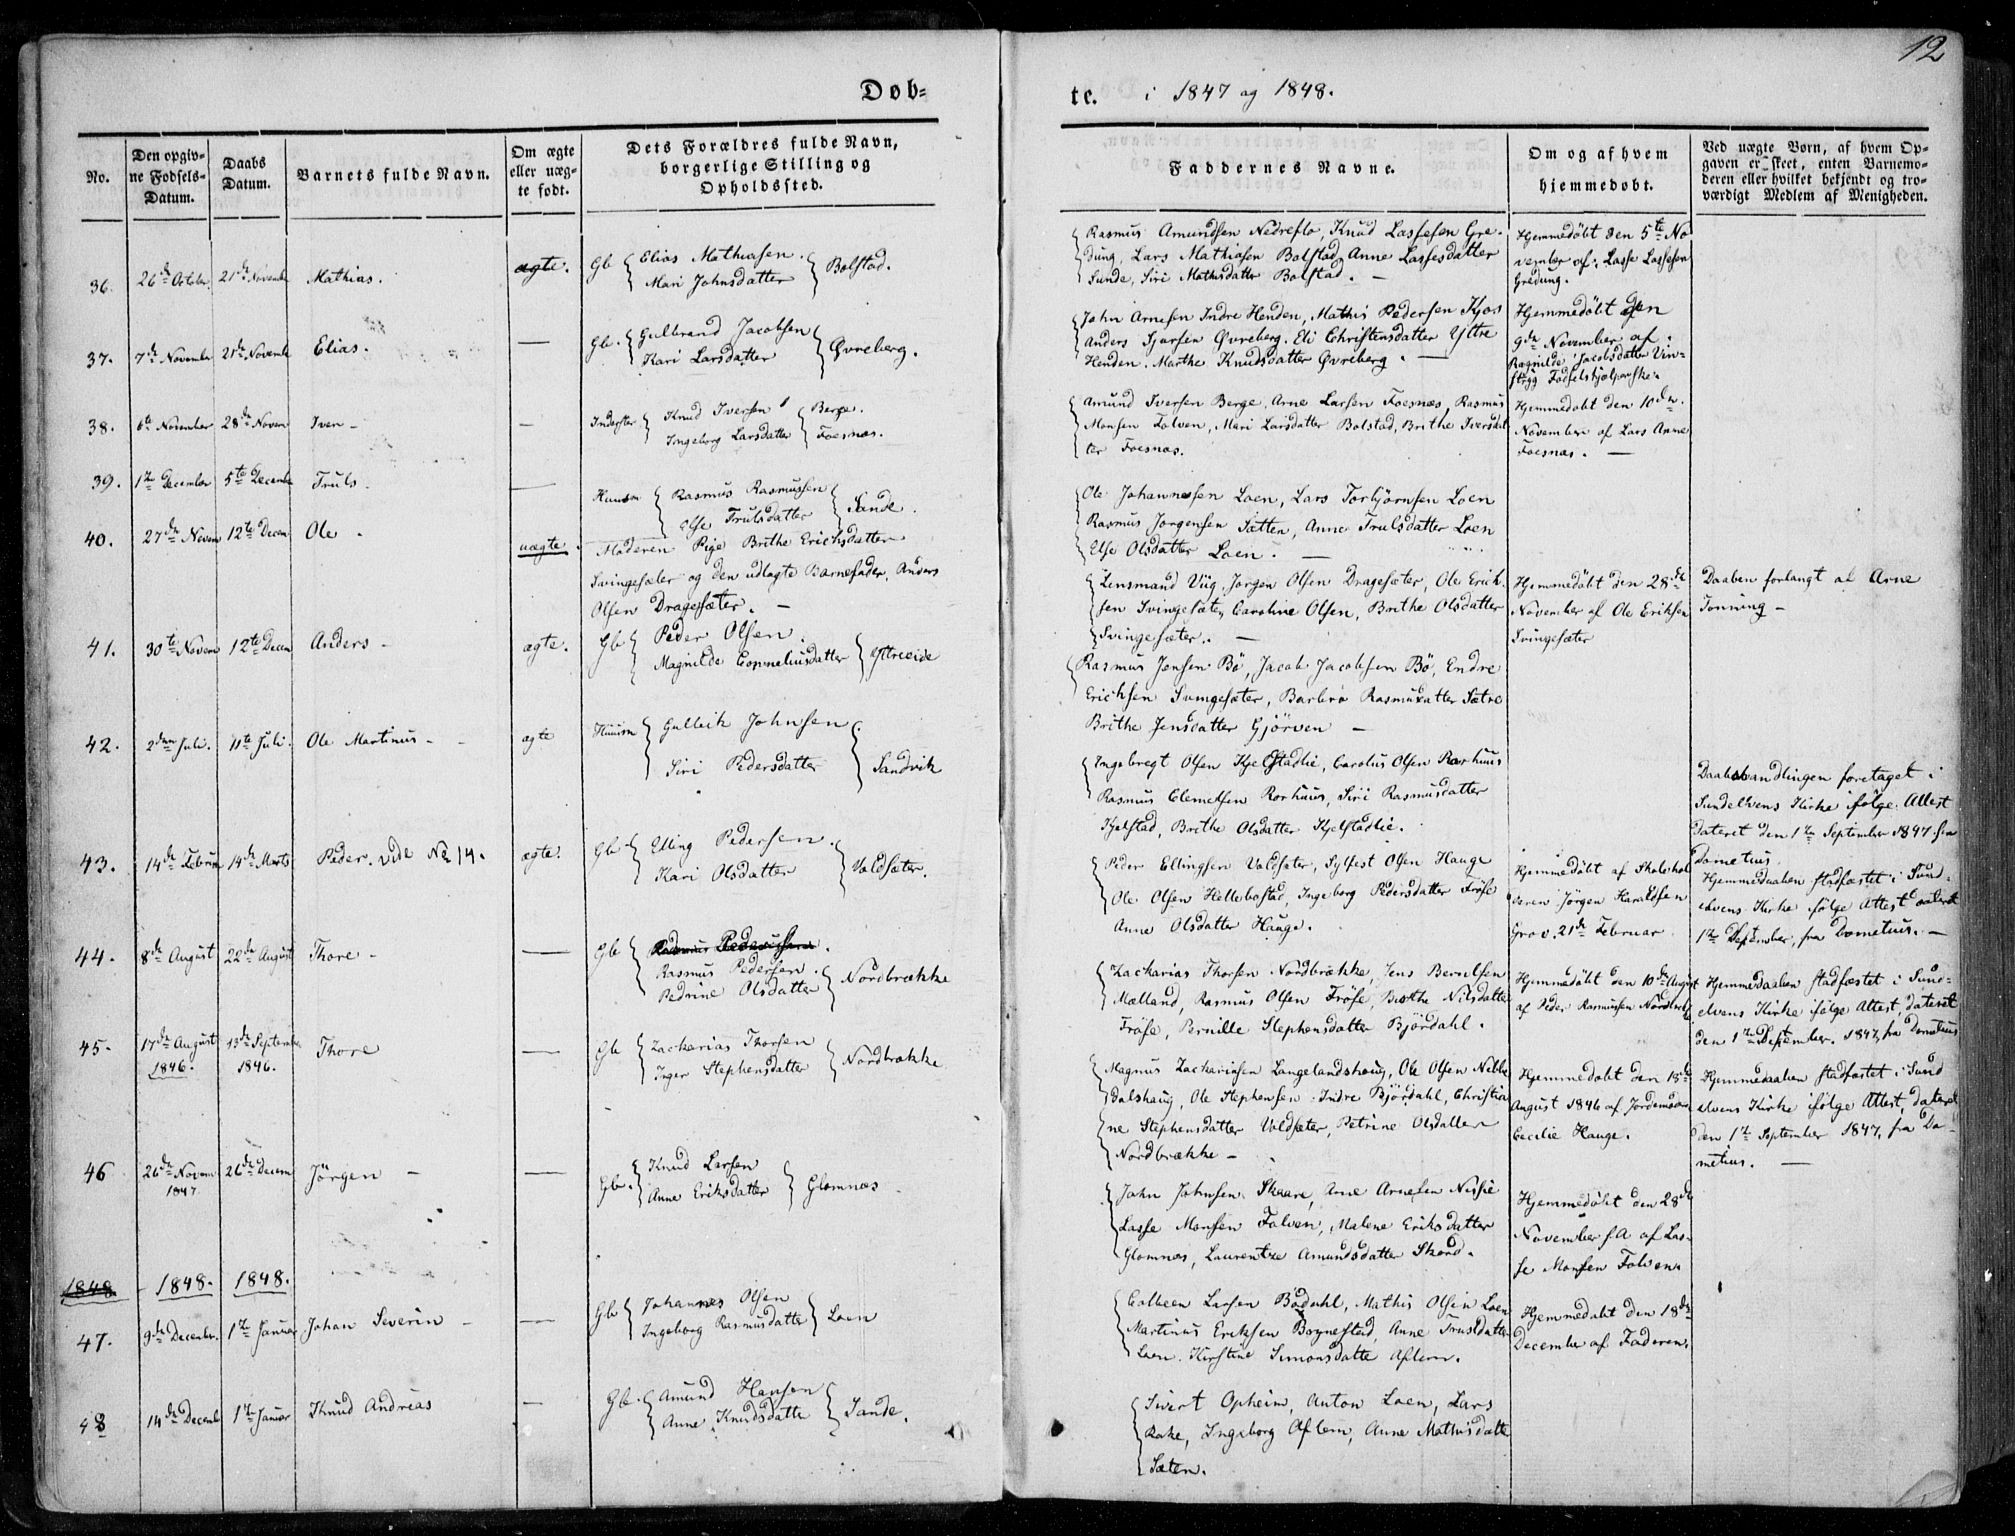 12
Døb-
te. i 1847 og 1848.
No.
Den opgiv-
ne Fødsels-
Datum.
Daabs
Datum.
Barnets fulde Navn.
Om ægte
eller uæg-
te født.
Dets Forældres fulde Navn,
borgerlige Stilling og
Opholdssted.
Faddernes Navne.
Om og af hvem
hjemmedøbt.
Ved uægte Børn, af hvem Op-
gaven er skeet, enten Barnemo-
deren eller hvilket bekjendt og tro-
værdigt Medlem af Menigheden.
36. 26de October 21de November Mathias. ægte. Gb Elias Mathiasen.
Mari Johnsdatter Bolstad.
Rasmus Amundsen Nedreflo, Knud Lassesen Gre-
dung, Lars Mathiasen Bolstad, Anne Lassesdatter
Sunde, Siri Mathisdatter Bolstad. —
Hjemmedøbt den 5te No
vember af Lasse Lassesen
Gredung.
37. 7de November 21de Novemb Elias. — Gb. Gulbrand Jacobsen
Kari Larsdatter Øvreberg.
John Arnesen Indre Henden, Mathis Pedersen Kjos
Anders Sjursen Øvreberg. Eli Christensdatter Yttre
Henden. Marthe Knudsdatter Øvreberg. —
Hjemmedøbt den
9de November af
Ragnilde Jacobsdatter Vin-
Fødselshjælperske.
38. 6te November 28de Novem Iver - — Inderster Knud Iversen Berge.
Ingeborg Larsdatter Foesnæs.
Amund Iversen Berge, Arne Larsen Foesnæs, Rasmus
Monsen Folven, Mari Larsdatter Bolstad, Brithe Iversdat
ter Foesnæs.
Hjemmedøbt den 10de
November af Lars Anne
Foesnæs. —
39. 1te December 5te Decemb Truls. — Huusm Rasmus Rasmussen
Else Trulsdatter Sande.
Ole Johannesen Loen, Lars Torbjørnsen Loen
Rasmus Jorgensen Sætten, Anne Trulsdatter Loen
Else Olsdatter Loen. —
40. 27de Novem 12te Decem Ole. uægte. Moderen Pige Brithe Erichsdatter
Svingesæter og den udlagte Barnefader, Anders
Olsen Dragesæter. —
Lensmand Viig, Jorgen Olsen Dragesæter, Ole Erich-
sen Svingesæter, Caroline Olsen, Brithe Olsdatter
Svingesæter. —
Hjemmedøbt den 28de
November af Ole Eriksen
Svingesæter
Daaben forlangt af Arne
Tonning —
41. 30te Novem 12te Decem Anders - ægte. Gb Peder Olsen.
Magnilde Corneliusdatter Yttreeide
Rasmus Jensen Bö, Jacob Jacobsen Bö, Endre
Erichsen Svingesæter, Barbro Rasmusdatter Sætre
Brithe Jensdatter Gjörven —
42. 2den Juli. 11te Juli. Ole Martinus - ægte Huusm Gulleik Johnsen
Siri Pedersdatter Sandvik
Ingebregt Olsen Kjelstadlie, Carolus Olsen Rørhuus
Rasmus Clemetsen Rorhuus, Siri Rasmusdatter
Kjelstad, Brithe Olsdatter Kjelstadlie.
Daabshandlingen foretaget i
Sundelvens Kirke ifølge Attest
dateret den 1te September 1847 fra
Dometius.
43. 14de Februar 14de Marts Peder. vide No 14. ægte. Gb Elling Pedersen.
Kari Olsdatter Valdsæter.
Peder Ellingsen Valdsæter, Sylfest Olsen Hauge
Ole Olsen Hellebostad, Ingeborg Pedersdatter Fröse
Anne Olsdatter Hauge.
Hjemmedøbt af Skolehol
deren Jörgen Haraldsen
Grov. 21de Februar
Hjemmedaaben stadfæstet i Sund-
elvens Kirke ifølge Attest dateret
1te September, fra Dometius. —
44. 8de August 22de August Thore - — Gb Rasmus Pedersen.
Rasmus Pedersen.
Pedrine Olsdatter Nordbrække
Zackarias Thorsen Nordbrække, Jens Berntsen
Mælland, Rasmus Olsen Fröse, Berthe Nilsdatter
Fröse, Pernille Stephensdatter Björdahl.
Hjemmedøbt den 10de August
af Peder Rasmussen Nordbrek
Hjemmedaaben stadfæstet i Sund-
elvens Kirke ifølge Attest, dateret
den 1te September. 1847, fra Dometius
45. 17de August
1846. 13de Septembe
1846. Thore — Gb Zackarias Thorsen
Inger Stephensdatter Nordbrække
Magnus Zackariasen Langelandshaug, Ole Olsen Nibbe
dalshaug, Ole Stephensen Indre Björdahl, Christia
ne Stephensdatter Valdsæter, Petrine Olsdatter
Nordbrække —
Hjemmedøbt den 18de
August 1846 af Jordemoder
Cecilie Hauge.
Hjemmedaaben stadfæstet i Sund
elvens Kirke ifølge Attest, dateret
den 1te September 1847, fra Do-
metius. —
46 26de Novem
1847 26de Decem Jörgen - — Gb. Knud Larsen
Anne Eriksdatter Glomnæs
John Johnsen Skaare, Arne Arnesen Nissie
Lasse Monsen Folven, Malene Eriksdatter
Glomnæs, Laurentze Amundsdatter Skaad.
Hjemmedøbt den 28de
November s.A af Las-
se Monsen Folven.
1848 1848. 1848.
47. 9de December. 1te Januar Johan Severin - — Gb Johannes Olsen
Ingeborg Rasmusdatte Loen
Colbeen Larsen Bødahl, Mathis Olsen Loen
Martinus Eriksen Brynestad, Anne Trulsdatter
Loen. Kirstine Simonsdatte Aflem.
Hjemmedøbt den 18de
December af Faderen.
48 14de Decemb 1te Januar Knud Andreas — Gb. Amund Hansen
Anne Knudsdatte Sande.
Sivert Opheim, Anton Loen, Lars
Rake, Ingeborg Aflem, Anne Mathisdatte
Sæten.